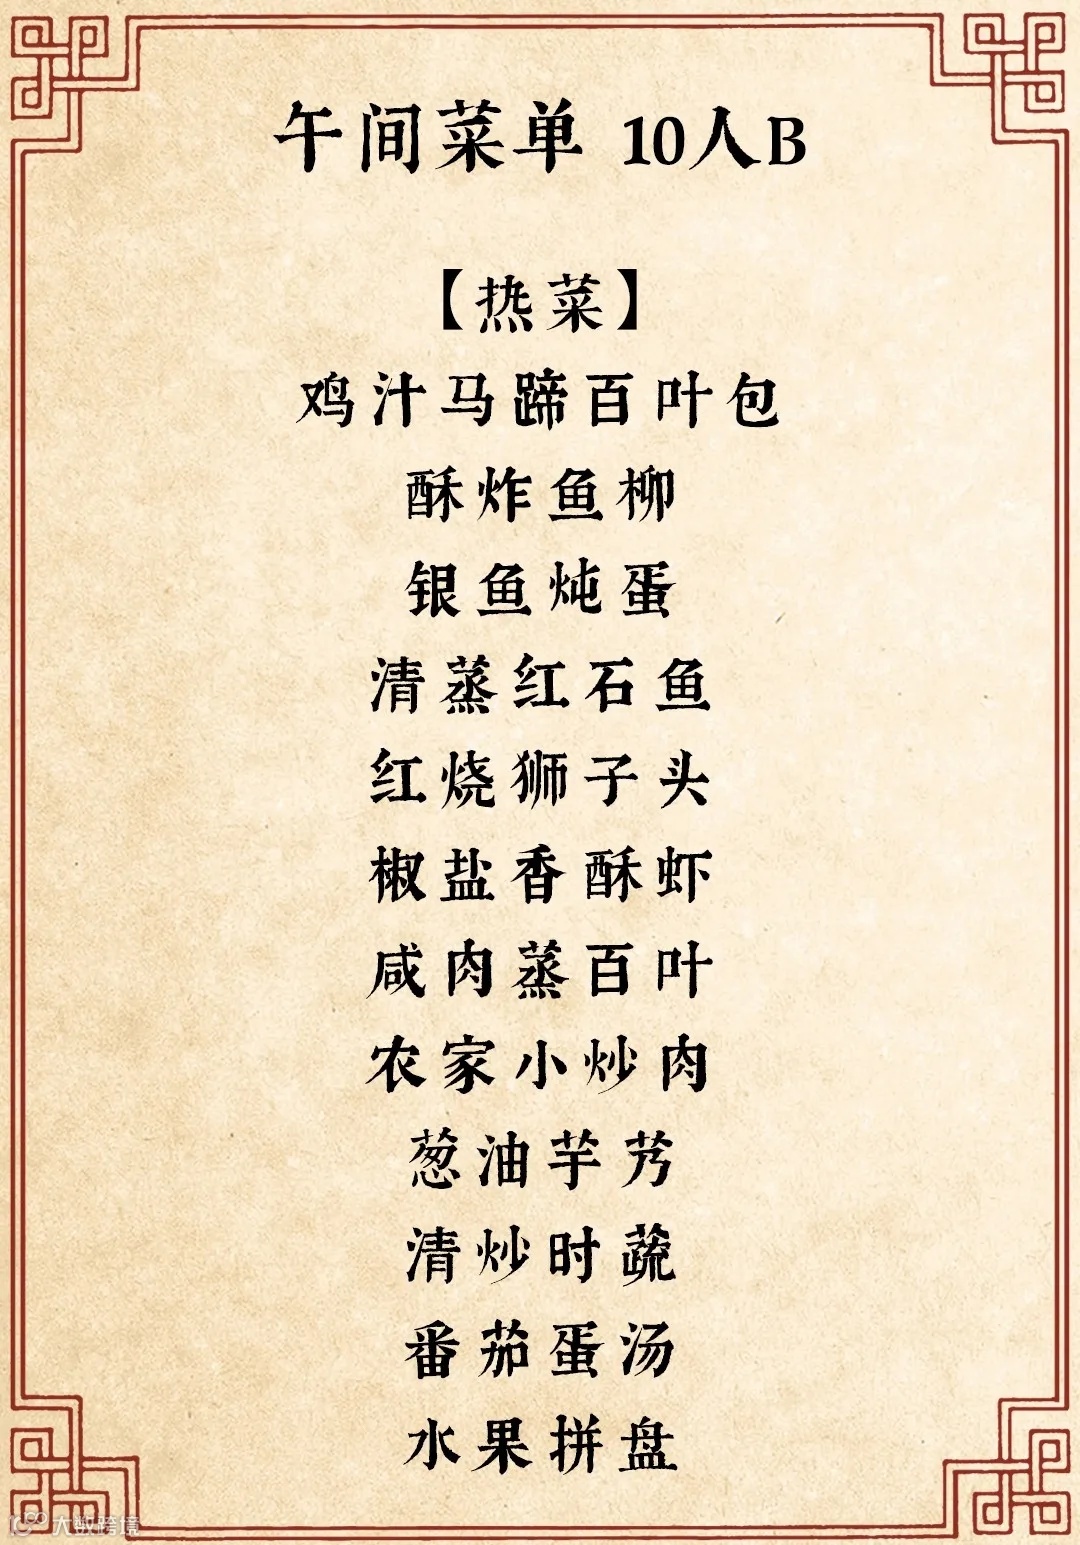 午间菜单 10人B
【热菜】
鸡汁马蹄百叶包
酥炸鱼柳
银鱼炖蛋
清蒸红石鱼
红烧狮子头
椒盐香酥虾
咸肉蒸百叶
农家小炒肉
葱油芋艿
清炒时蔬
番茄蛋汤
水果拼盘
大数跨境